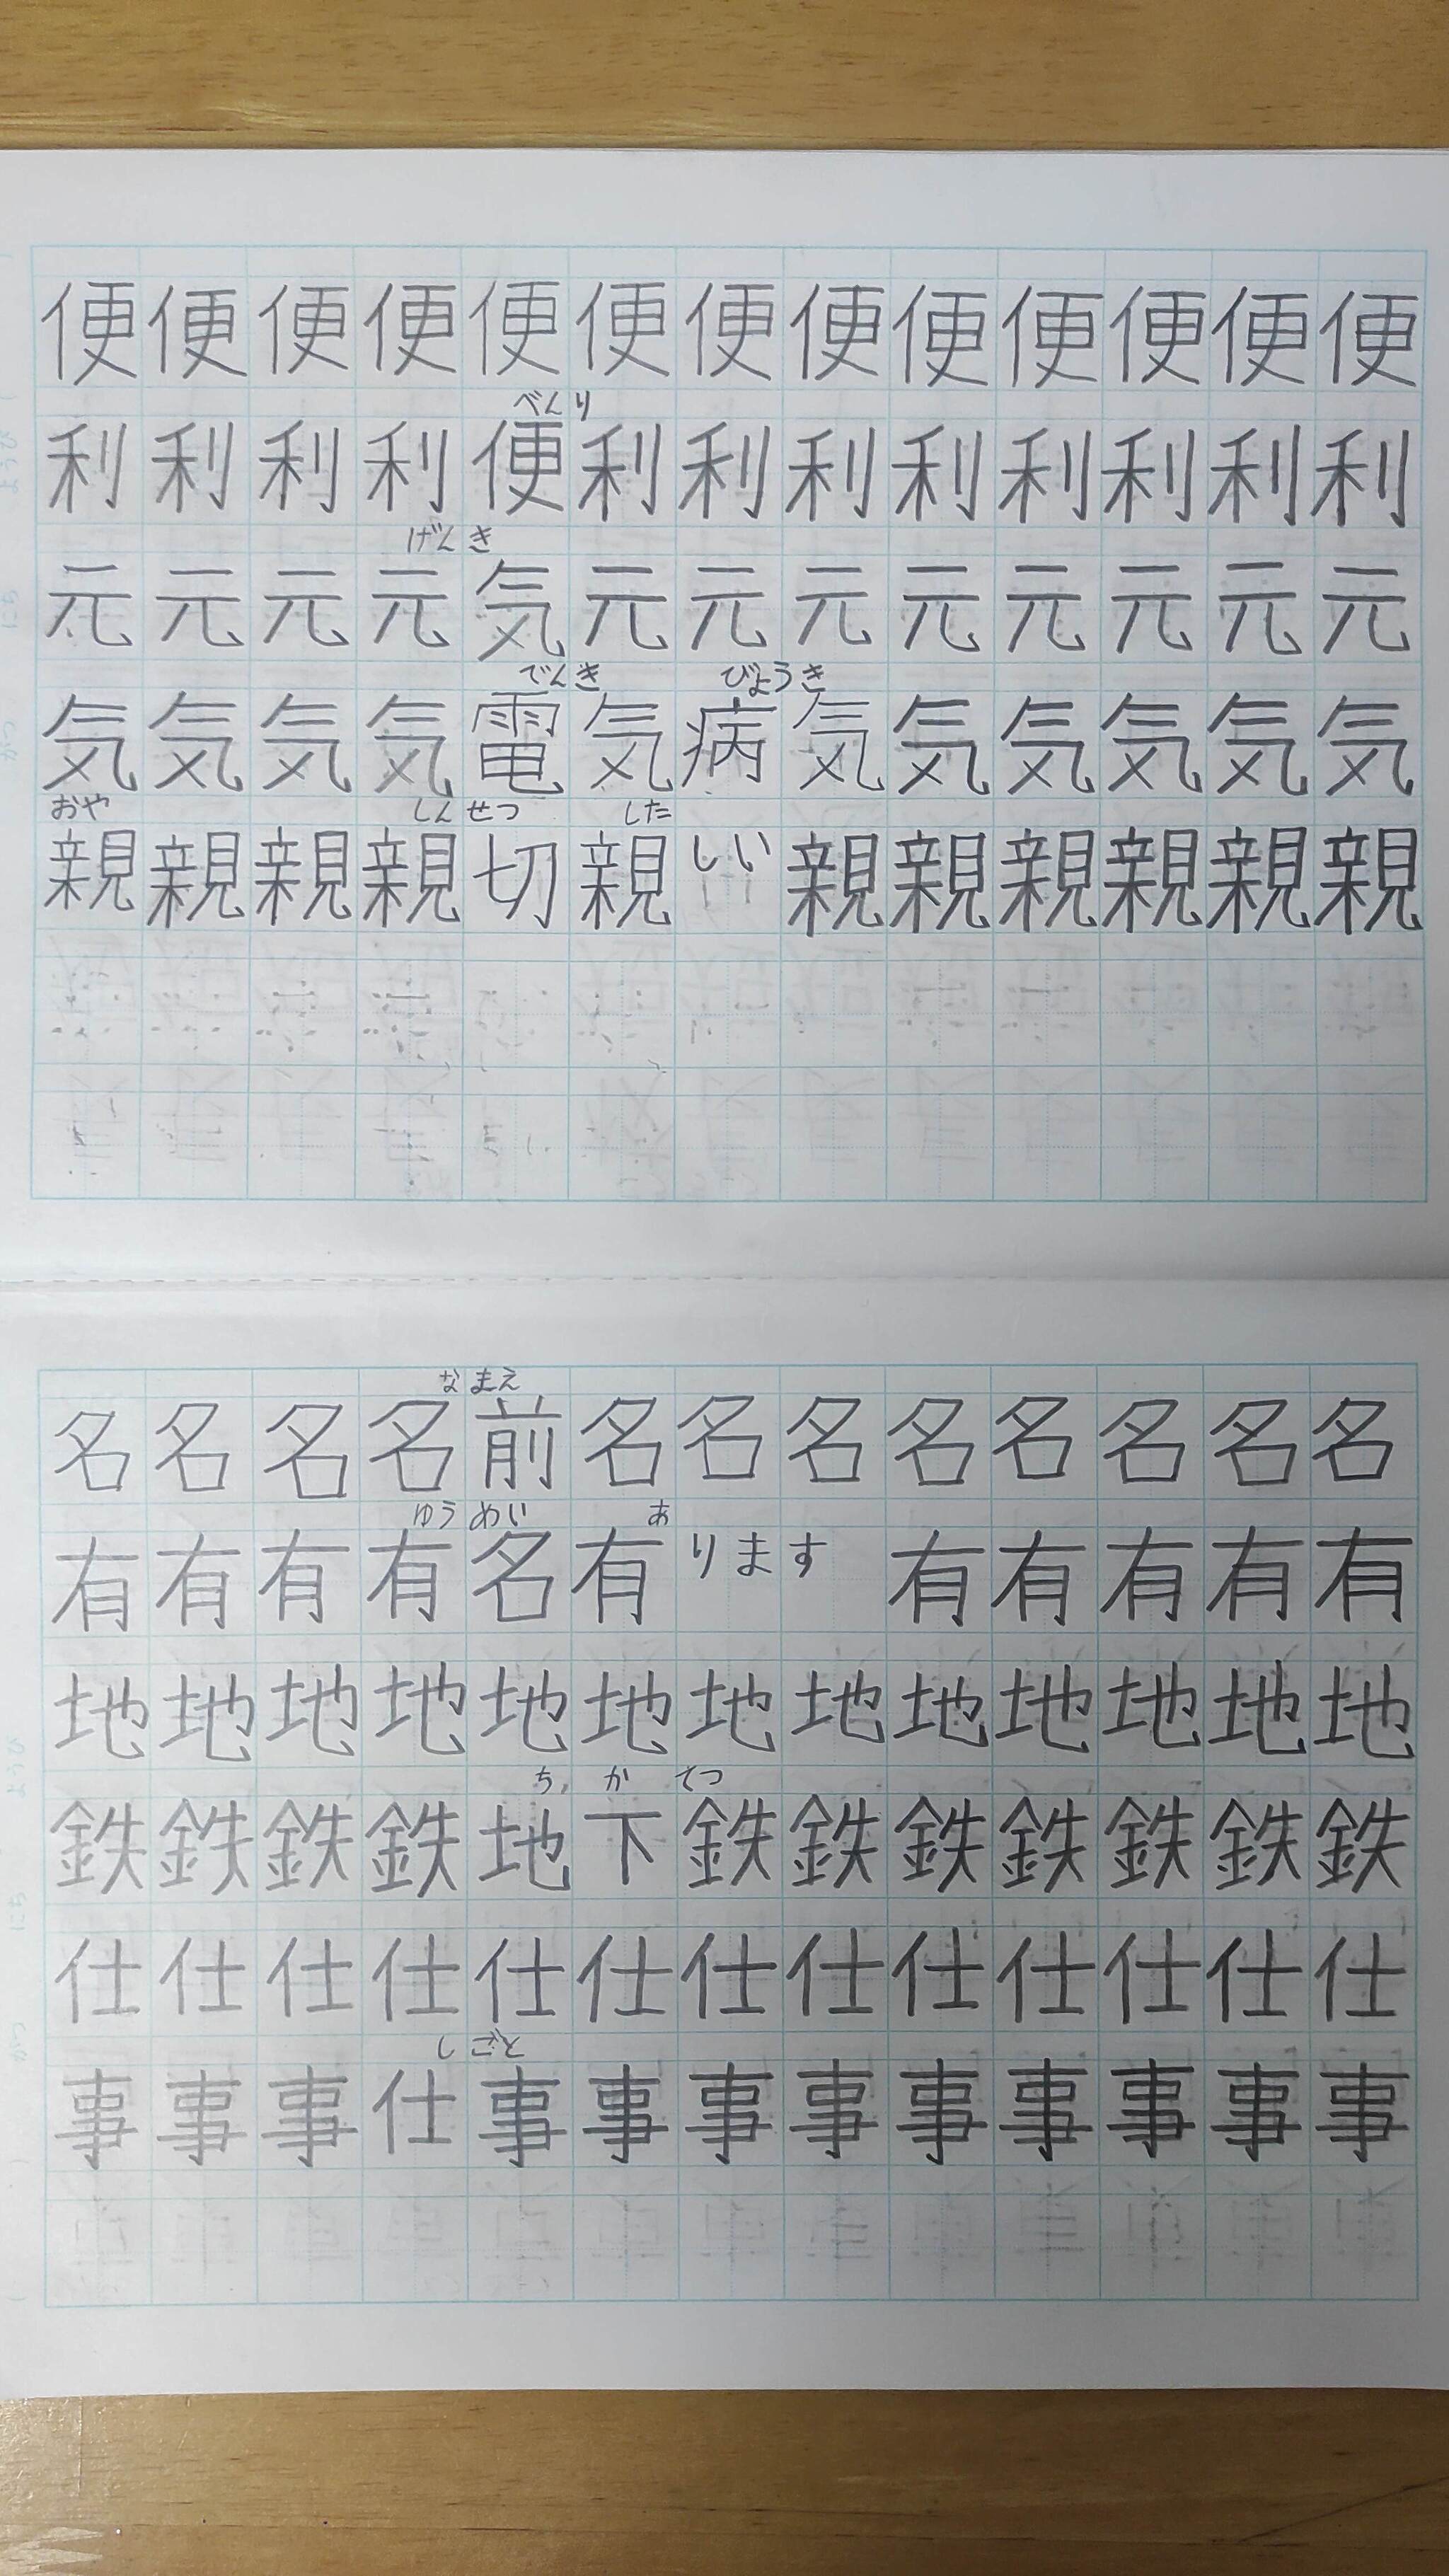 便便便便便便便便便便便便便
べんり
利利利利便利利利利利利利利
げんき
元元元元気元元元元元元元元
でんき びょうき
気気気気電気病気気気気気気
おや しんせつ した
親親親親切親しい親親親親親親
なまえ
名名名名前名名名名名名名名
ゆうめい あ
有有有有名有ります有有有有有
地地地地地地地地地地地地地
ちかてつ
鉄鉄鉄鉄地下鉄鉄鉄鉄鉄鉄鉄
仕仕仕仕仕仕仕仕仕仕仕仕仕
しごと
事事事仕事事事事事事事事事